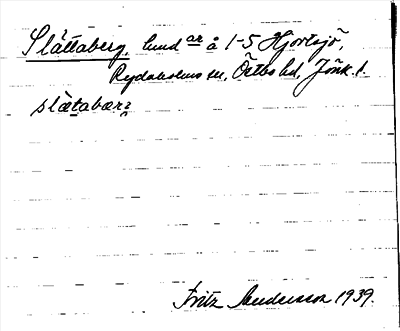 Slättaberg, lund ar å 1-5 Hjortsjö,
Rydaholms sn, Östbo hd, Jönk. l.
slætabærg
Fritz Andersson 1939.